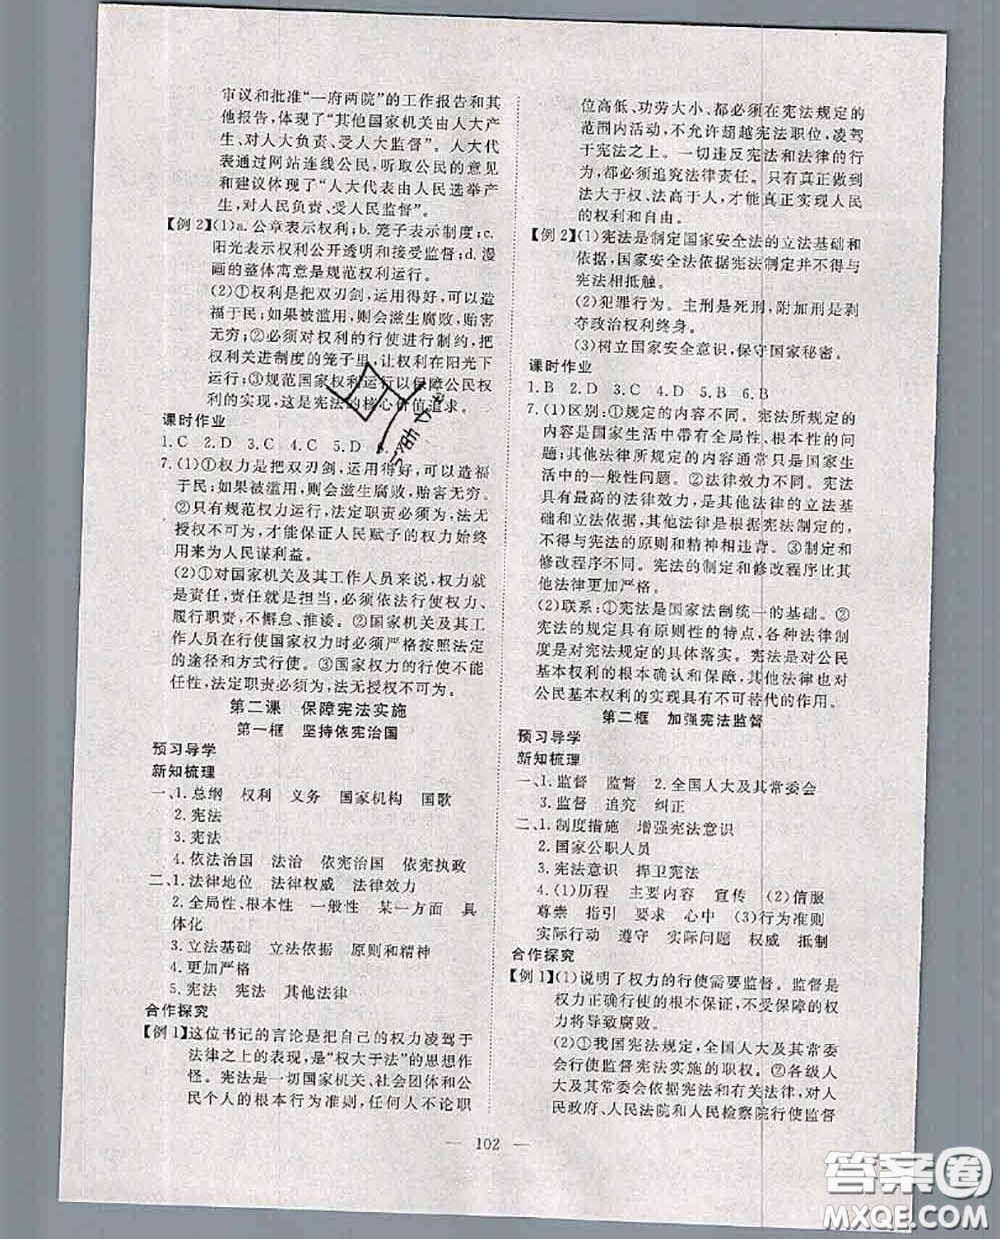 审议和批准“一府两院”的工作报告和其
他报告,体现了“其他国家机关由人大产
生、对人大负责、受人大监督”。人大代
表通过网站连线公民,听取公民的意见
和建议体现了“人大代表由人民选举产
生,对人民负责、受人民监督”。
【例2】(1)a.公章表示权利;b.笼子表示制度;c.
阳光表示权利公开透明和接受监督;d.漫
画的整体寓意是规范权利运行。
(2)①权利是把双刃剑,运用得好,可以造
福于民;如果被滥用,则会滋生腐败,贻害
无穷;②必须对权利的行使进行制约,把
权利关进制度的笼子里,让权利在阳光下
运行;③规范国家权利运行以保障公民权
利的实现,这是宪法的核心价值追求。
课时作业
1.C 2.D 3.C 4.C 5.D
7.(1)①权力是把双刃剑,运用得好,可以造福
于民;如果被滥用,则会滋生腐败,贻害无穷。
②只有规范权力运行,法定职责必须为,法
无授权不可为,才能保证人民赋予的权力始终
用来为人民谋利益。
(2)①对国家机关及其工作人员来说,权力
就是责任,责任就是担当,必须依法行使权力、
履行职责,不懈怠、推诿。②国家机关及其工
作人员在行使国家权力时必须严格按照法定
的途径和方式行使。③国家权力的行使不能
任性,法定职责必须为,法无授权不可为。
第二课 保障宪法实施
第一框 坚持依宪治国
预习导学
新知梳理
一、1.总纲 权利 义务 国家机构 国歌
2.宪法
3.宪法
4.依法治国 法治 依宪治国 依宪执政
二、1.法律地位 法律权威 法律效力
2.全局性、根本性 一般性 某一方面 具
体化
3.立法基础 立法依据 原则和精神
4.更加严格
5.宪法 宪法 其他法律
合作探究
【例1】这位书记的言论是把自己的权力凌驾于
法律之上的表现,是“权大于法”的思想作
怪。宪法是一切国家机关、社会团体和公
民个人的根本行为准则,任何人不论职
位高低、功劳大小、都必须在宪法规定的
范围内活动,不允许超越宪法职位,凌驾
于宪法之上。一切违反宪法和法律的行
为,都必须追究法律责任。只有真正做到
法大于权、法高于人,才能真正实现人民
的权利和自由。
【例2】(1)宪法是制定国家安全法的立法基础和
依据,国家安全法依据宪法制定并不得与
宪法相抵触。
(2)犯罪行为。主刑是死刑,附加刑是剥
夺政治权利终身。
(3)树立国家安全意识,保守国家秘密。
课时作业
1.B 2.D 3.C 4.D 5.B 6.B
7.(1)区别:①规定的内容不同。宪法所规定的
内容是国家生活中带有全局性、根本性的问
题;其他法律所规定的内容通常是国家生
活中的一般性问题。②法律效力不同。宪法
具有最高的法律效力,是其他法律的立法基
础和立法依据,其他法律是根据宪法制定的,
不得与宪法的原则和精神相违背。③制定和
修改程序不同。宪法的制定和修改程序比其
他法律更加严格。
(2)联系:①宪法是国家法制统一的基础。②
宪法的规定具有原则性的特点,各种法律制
度是对宪法规定的具体落实。宪法是对公民
基本权利的根本确认和保障,其他法律也对
公民基本权利的实现具有不可替代的作用。
第二框 加强宪法监督
预习导学
新知梳理
一、1.监督 监督 2.全国人大及其常委会
3.监督 追究 纠正
二、1.制度措施 增强宪法意识
2.国家公职人员
3.宪法意识 捍卫宪法
4.(1)历程 主要内容 宣传 (2)信服
尊崇 指引 要求 心中 (3)行为准则
实际行动 遵守 实际问题 权威 抵制
合作探究
【例1】(1)说明了权力的行使需要监督。监督是
权力正确行使的根本保证,不受保障的权
力将导致腐败。
(2)①我国宪法规定,全国人大及其常委
会行使监督宪法实施的职权。②各级人
大及其常委会依据宪法和有关法律,对人
民政府、人民法院和人民检察院行使监督
— 102 —
答案圈
MXQE.COM